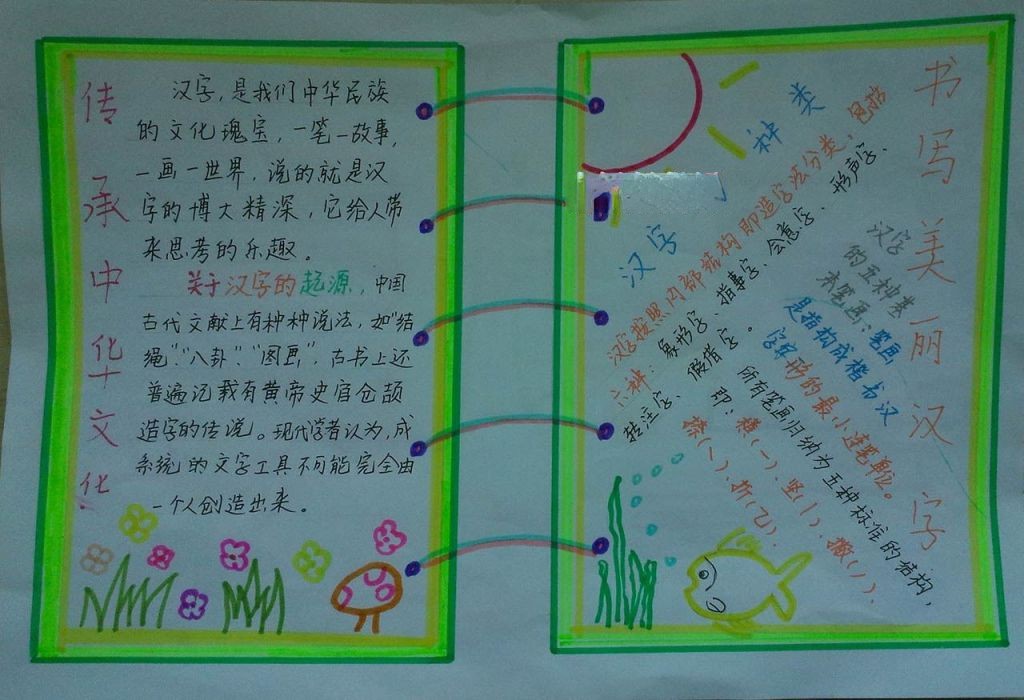 传承中华文化
汉字，是我们中华民族
的文化瑰宝，一笔一故事，
一画一世界，说的就是汉
字的博大精深，它给人带
来思考的乐趣。
关于汉字的起源，中国
古代文献上有种种说法，如"结
绳""八卦""图画"，古书上还
普遍记载有黄帝史官仓颉
造字的传说。现代学者认为，成
系统的文字工具不可能完全由
一个人创造出来。
书写美丽汉字
汉字种类
汉字按照内部结构即造字法分类，是指
六种：象形字、指事字、会意字、形声字、
转注字、假借字。
汉字
的五种基
本笔画：笔画
是指构成楷书汉
字字形的最小连笔单位。
所有笔画归纳为五种标准的结构，
即：横(一)、竖(丨)、撇(丿)、
捺(㇏)、折(乙)。